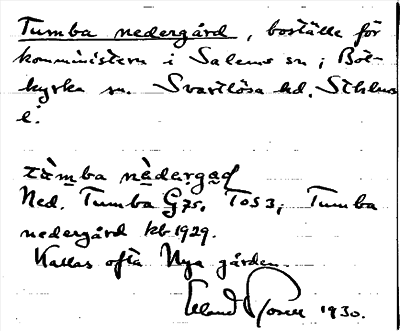 Tumba nedergård, boställe för
komministern i Salems sn, i Bot-
kyrka sn. Svartlösa hd. Sthlms
l.
tàmba nèdergaḍ
Ned. Tumba G 75, TOS 3; Tumba
nedergård kb 1929.
Kallas ofta Nya gården.
Erland Rosell 1930.